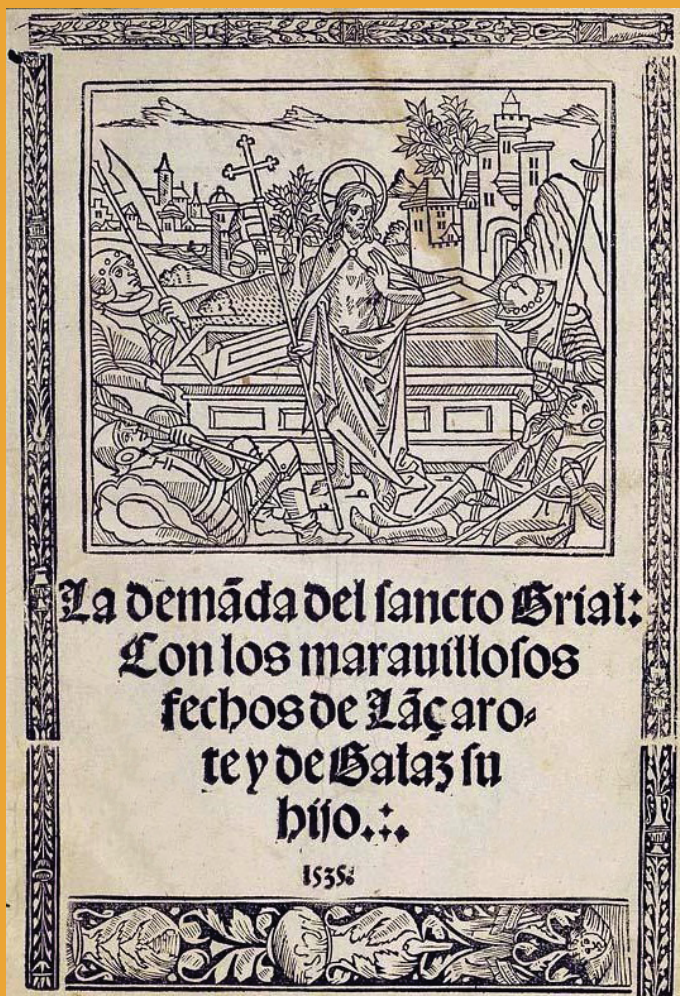 La demãda del ſancto Grial:
Con los marauilloſos
fechos de Lãçaro⸗
te y de Galaz ſu
hijo.∴
1535: